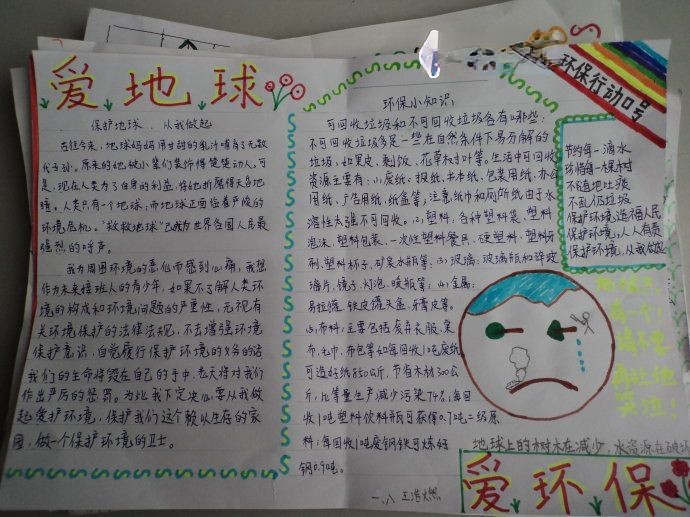 爱地球
保护地球，从我做起
在但今来，地球妈妈用甘甜的乳汁哺育了无数
代子孙。原来的她被小辈们装饰得楚楚动人。可
是，现在人类为了自身的利益，将她折磨得天昏地
暗。人类只有一个地球；而地球正面临着严峻的
环境危机。“救救地球”已成为世界各国人民最
强烈的呼声。
我为周围环境的恶化而感到心痛，我想
作为未来接班人的青少年，如果不了解人类环
境的构成和环境问题的严重性，无视有
关环境保护的法律法规，不去增强环境
保护意识，自觉履行保护环境的义务的话
我们的生命将毁在自己的手中，老天将对我们
作出严厉的惩罚。为此我下定决心要从我做
起爱护环境，保护我们这个赖以生存的家
园，做一个保护环境的卫士。
环保小知识
可回收垃圾和不可回收垃圾各有哪些：
不可回收垃圾多是一些在自然条件下易分解的
垃圾，如果皮、剩饭、花草树叶等。生活中可回收
资源主要有：⑴废纸：报纸、书本纸、包装用纸、办公
用纸、广告用纸、纸盒等；注意纸巾和厕所纸由于水
溶性太强不可回收。⑵，塑料，各种塑料袋、塑料
泡沫、塑料包装、一次性塑料餐具、硬塑料、塑料牙
刷、塑料杯子、矿泉水瓶等；⑶玻璃：玻璃瓶和碎玻
璃片、镜子、灯泡、暖瓶等；⑷，金属：
易拉罐、铁皮罐头盒、牙膏皮等。
⑸，布料：主要包括废弃衣服、桌
布、毛巾、布包等如每回收1吨废纸
可造好纸850公斤，节省木材300公
斤，比等量生产减少污染74%；每回
收1吨塑料饮料瓶可获得0.7吨二级原
料；每回收1吨废钢铁可炼好
钢0.9吨。
一、八 王浩燃
环保行动口号
节约每一滴水
珍惜每一棵树
不随地吐痰
不乱仍垃圾
保护环境，造福人民
保护环境，人人有责
保护环境，从我做起
有一个！
请不要
再让他
哭泣！
地球上的树木在减少，水资源在破坏
爱环保